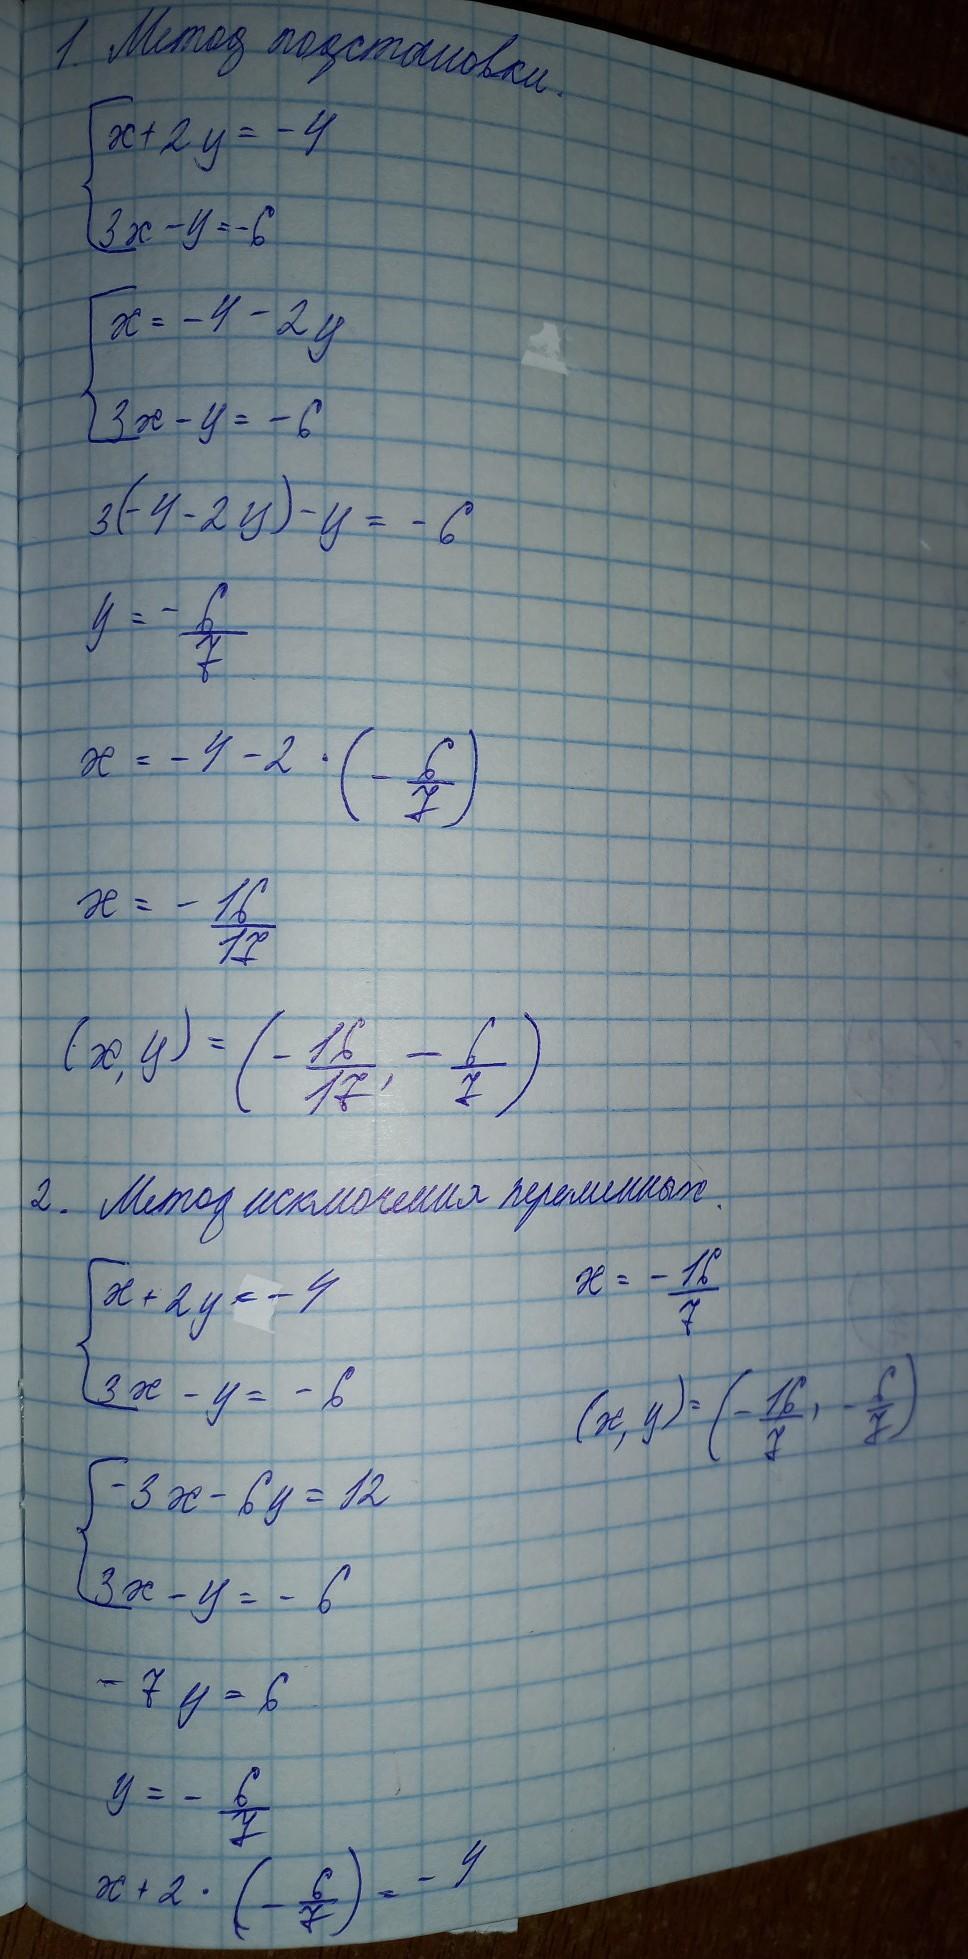 1. Метод подстановки.
x + 2y = -4
3x - y = -6
x = -4 - 2y
3x - y = -6
3(-4 - 2y) - y = -6
y = - 6/7
x = -4 - 2 · (- 6/7)
x = - 16/17
(x, y) = (- 16/17, - 6/7)
2. Метод исключения переменных.
x + 2y = -4
3x - y = -6
-3x - 6y = 12
3x - y = -6
-7y = 6
y = - 6/7
x + 2 · (- 6/7) = -4
x = - 16/7
(x, y) = (- 16/7, - 6/7)